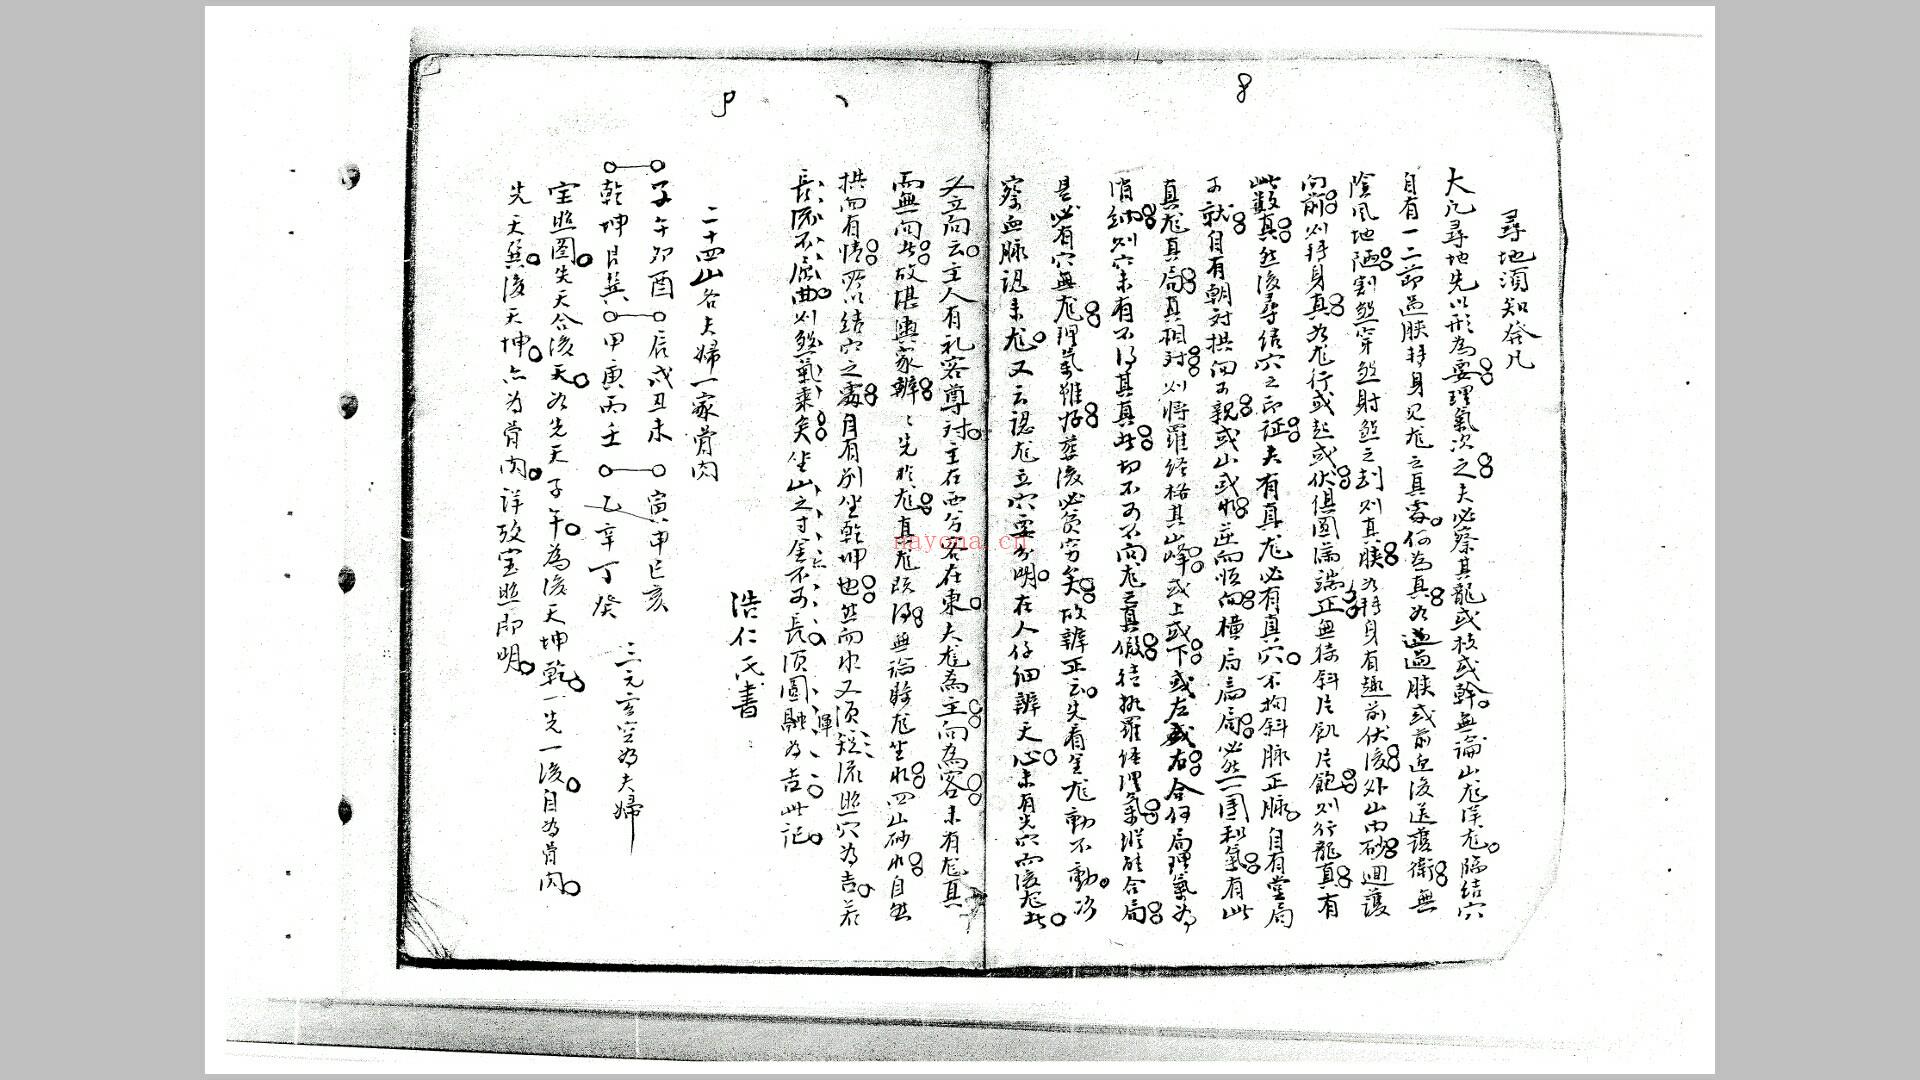 8
尋地須知發凡
大凡尋地先以形為要理氣次之夫必察其龍或枝或幹無論山尨洋尨臨結穴
自有一二節過脥轉身見尨之真處何為真為過脥或前迎後送護衛無
陰風地陋割煞穿煞射煞之刦則真脥為轉身有趣前伏後外山內砂迴護
向前則轉身真為尨行或起或伏俱圓滿端正無猗斜片飢片飽則行龍真有
此數真然後尋結穴之的証夫有真尨必有真穴不拘斜脉正脉自有堂局
可就自有朝对拱向可親或山或水逆向順向橫局扁局必然一團和氣有此
真尨真局真相対則將羅经格其山峰或上或下或左或右合何局理氣為
消納則穴未有不得其真此切不可不向尨之真假徒執羅经理氣縱硬合局
是必有穴無尨理氣雖好葬後必貧穷矣故辨正云先看金尨動不動次
察血脉認來尨又云認尨立穴要分明在人仔細辨天心未有先穴而後尨此
९
又立向云主人有礼客尊対主在西兮客在東夫尨為主向為客未有尨真
而無向此故堪輿家辨〻先於尨真尨既得無論騎尨坐水四山砂水自然
拱向有情所以結穴之處自有別坐乾坤也然而水又須短流照穴為吉若
長流不屈曲则煞氣乘矣坐山之寸金不可長須圓融為吉此記
浩仁氏書
二十四山各夫婦一家骨肉
子午卯酉 辰戌丑未 寅申巳亥
乾坤艮巽 甲庚丙壬 乙辛丁癸 三元玄空為夫婦
宝照圖先天合後天為先天子午為後天坤乾一先一後自為骨肉
先天巽後天坤亦為骨肉詳攷宝照即明
nayona.cn